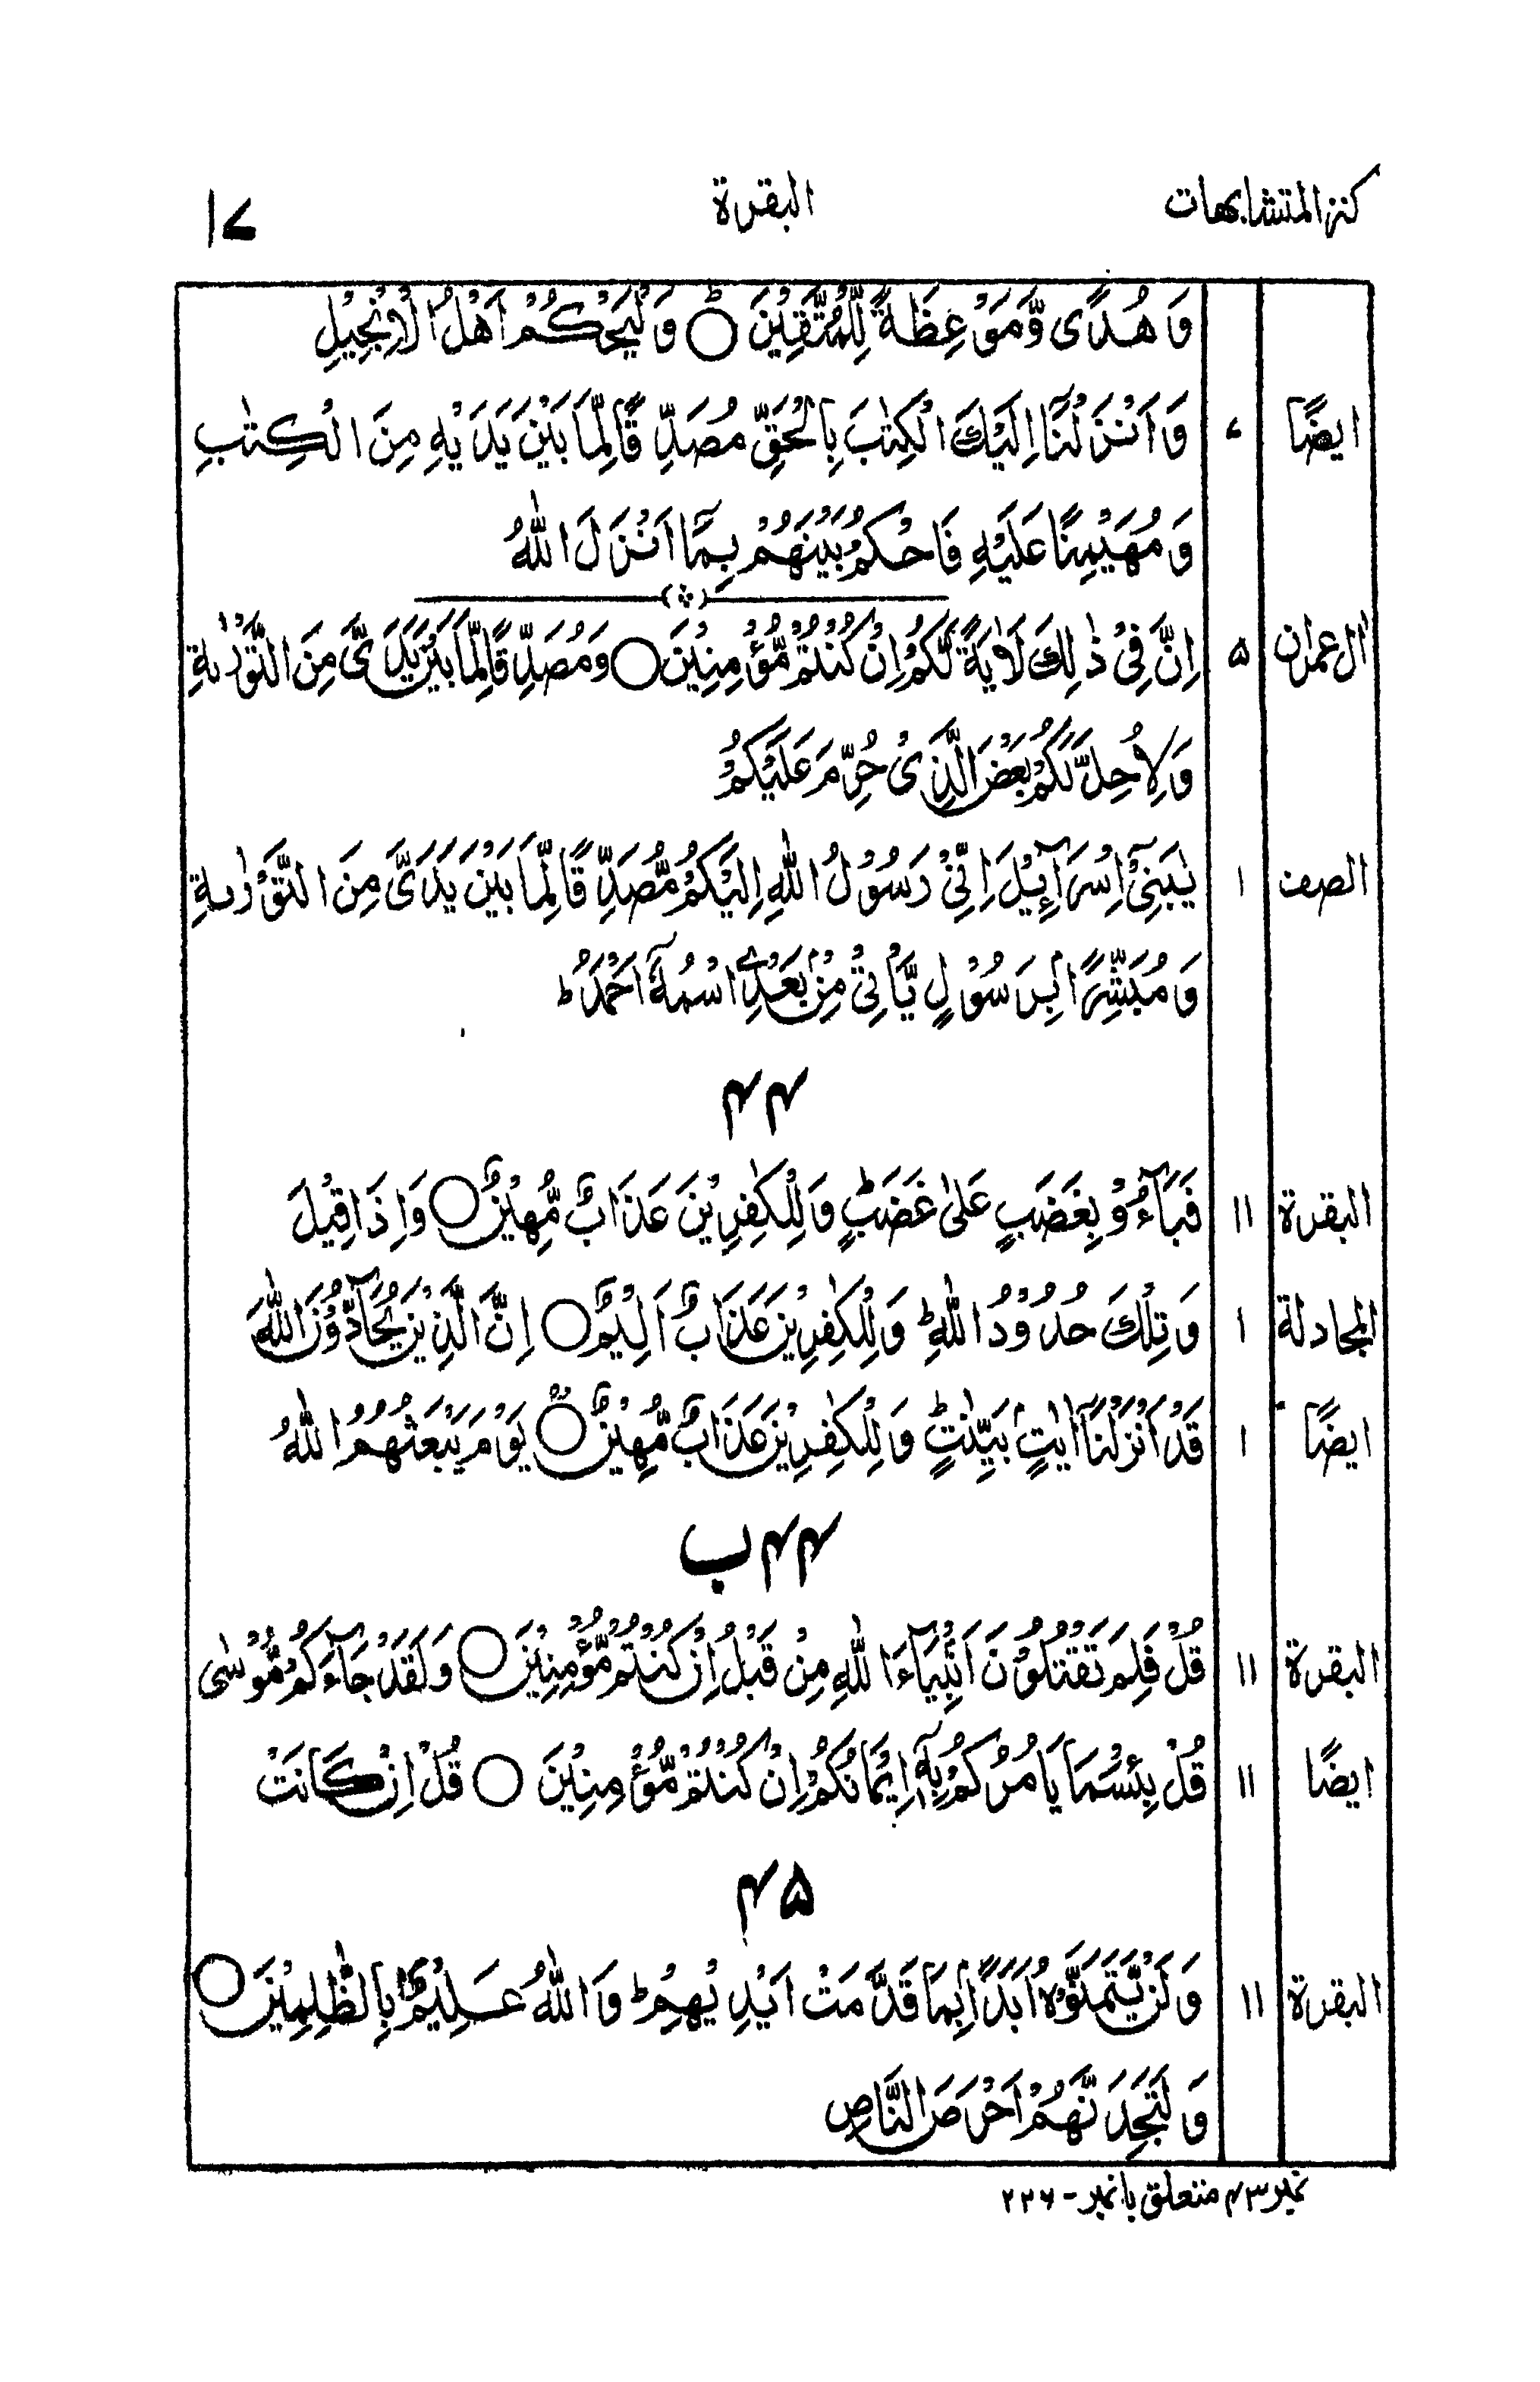 كنز المتشابهات البقرة ۱۷
وَهُدًى وَّمَوْعِظَةً لِّلْمُتَّقِيْنَ ○ؕ وَلْيَحْكُمْ اَهْلُ الْاِنْجِيْلِ
ايضًا ۷ وَاَنْزَلْنَاۤ اِلَيْكَ الْكِتٰبَ بِالْحَقِّ مُصَدِّقًا لِّمَا بَيْنَ يَدَيْهِ مِنَ الْكِتٰبِ
وَمُهَيْمِنًا عَلَيْهِ فَاحْكُمْ بَيْنَهُمْ بِمَاۤ اَنْزَلَ اللّٰهُ
اٰل عمران ۵ اِنَّ فِيْ ذٰلِكَ لَاٰيَةً لَّكُمْ اِنْ كُنْتُمْ مُّؤْمِنِيْنَ ○ وَمُصَدِّقًا لِّمَا بَيْنَ يَدَيَّ مِنَ التَّوْرٰىةِ
وَلِاُحِلَّ لَكُمْ بَعْضَ الَّذِيْ حُرِّمَ عَلَيْكُمْ
الصف ۱ يٰبَنِيْۤ اِسْرَآءِيْلَ اِنِّيْ رَسُوْلُ اللّٰهِ اِلَيْكُمْ مُّصَدِّقًا لِّمَا بَيْنَ يَدَيَّ مِنَ التَّوْرٰىةِ
وَمُبَشِّرًۢا بِرَسُوْلٍ يَّاْتِيْ مِنْۢ بَعْدِي اسْمُهٗۤ اَحْمَدُؕ
۴۴
البقرة ۱۱ فَبَآءُوْ بِغَضَبٍ عَلٰى غَضَبٍؕ وَلِلْكٰفِرِيْنَ عَذَابٌ مُّهِيْنٌ ○ وَاِذَا قِيْلَ
المجادلة ۱ وَتِلْكَ حُدُوْدُ اللّٰهِؕ وَلِلْكٰفِرِيْنَ عَذَابٌ اَلِيْمٌ ○ اِنَّ الَّذِيْنَ يُحَآدُّوْنَ اللّٰهَ
ايضًا ۱ قَدْ اَنْزَلْنَاۤ اٰيٰتٍۭ بَيِّنٰتٍؕ وَلِلْكٰفِرِيْنَ عَذَابٌ مُّهِيْنٌ ○ يَوْمَ يَبْعَثُهُمُ اللّٰهُ
۴۴ ب
البقرة ۱۱ قُلْ فَلِمَ تَقْتُلُوْنَ اَنْۢبِيَآءَ اللّٰهِ مِنْ قَبْلُ اِنْ كُنْتُمْ مُّؤْمِنِيْنَ ○ وَلَقَدْ جَآءَكُمْ مُّوْسٰى
ايضًا ۱۱ قُلْ بِئْسَمَا يَاْمُرُكُمْ بِهٖۤ اِيْمَانُكُمْ اِنْ كُنْتُمْ مُّؤْمِنِيْنَ ○ قُلْ اِنْ كَانَتْ
۴۵
البقرة ۱۱ وَلَنْ يَّتَمَنَّوْهُ اَبَدًۢا بِمَا قَدَّمَتْ اَيْدِيْهِمْؕ وَاللّٰهُ عَلِيْمٌۢ بِالظّٰلِمِيْنَ ○
وَلَتَجِدَنَّهُمْ اَحْرَصَ النَّاسِ
نمبر ۴۳ متعلق بانمبر - ۲۳۶